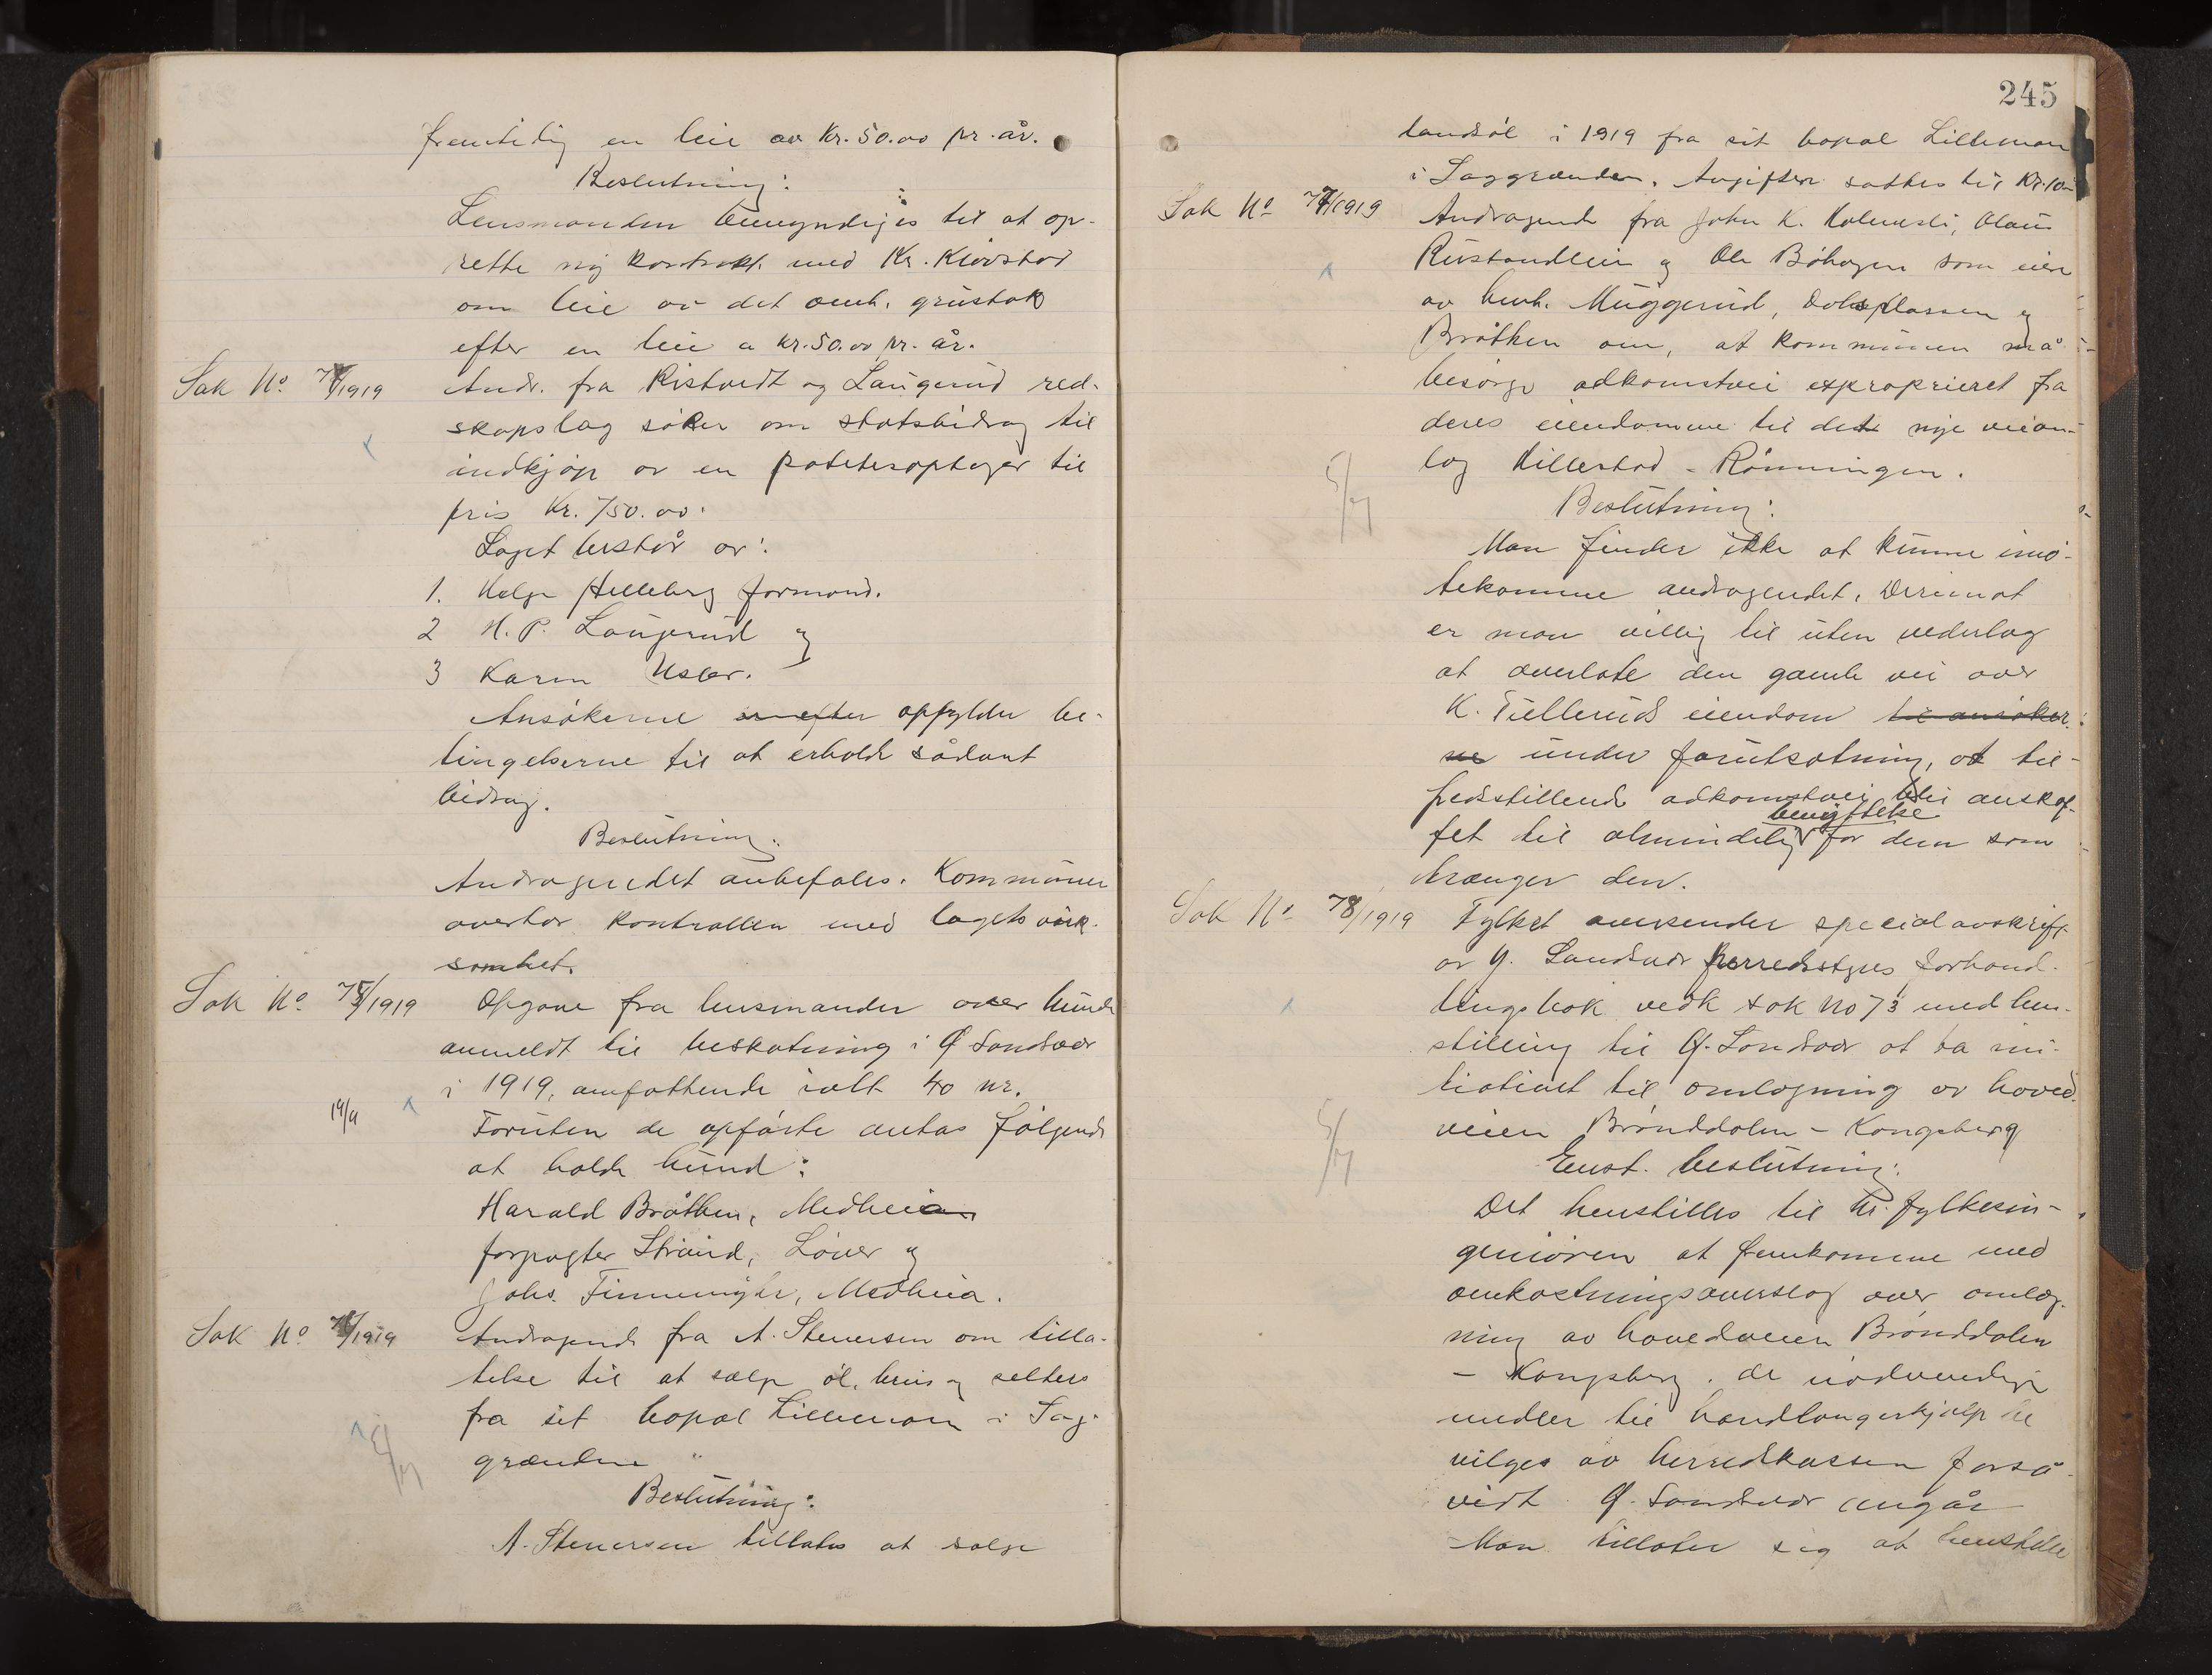 fremtidig en leie av Kr. 50.00 pr. år.
Beslutning:
Lensmanden bemyndiges til at op-
rette ny kontrakt med Kr. Klovstad
om leie av det omh. grustak
efter en leie a kr. 50.00 pr. år.
Sak No 74/1919 Andr. fra Ristvedt og Laugerud red-
skapslag søker om statsbidrag til
indkjøp av en potetesoptager til
pris Kr. 750.00.
Laget består av:
1. Helge Helleberg formand.
2 H. P. Laugerud og
3 Karen
Ansøkerne opfylder be-
tingelserne til at erholde sådant
bidrag.
Beslutning:
Andragendet anbefales. Kommunen
overtar kontrollen med lagets virk-
somhet.
Sak No. 75/1919 Opgave fra lensmanden over hunde
anmeldt til beskatning i Ø. Sandsvær
i 1919, omfattende ialt 40 nr.
14/4
Foruten de opførte antas følgende
at holde hund:
Harald Bråthen, Medheia
forpagter Strand, Løver og
Johs. Medheia.
Sak No 76/1919 Andragende fra A. Stenersen om tilla-
telse til at sælge øl, brus og selters
fra sit bopæl Lillemoen i Sag-
grænden
5/7
Beslutning:
A. Stenersen tillates at sælge
245
landsøl i 1919 fra sit bopæl Lillemoen
i Saggrænden. Avgiften sættes til Kr. 10
Sak No 77/1919 Andragende fra John K. Holmsli, Olaus
og Ole Bøhagen som eiere
av henh. Muggerud, Dokplassen og
Bråthen om, at kommunen må
besørge adkomstvei exproprieret fra
deres eiendomme til det nye veian-
læg Hillestad - Rønningen.
5/7
Beslutning:
Man finder ikke at kunne imø-
tekomme andragendet. Derimot
er man villig til uten vederlag
at overlate den gamle vei over
K. Tulleruds eiendom til ansøker-
ne under forutsætning, at til-
fredsstillende adkomstvei blir anskaf-
benyttelse
fet til almindelig for dem som
trænger den.
Sak No 78/1919 Fylket oversender specialavskrift
av Y. Sandsvær herredsstyres forhand-
lingsbok vedk sak No 73 med hen-
stilling til Ø. Sandsvær at ta ini-
tiativet til omlægning av hoved-
veien Brønddalen - Kongsberg
5/7
Enst. beslutning:
Det henstilles til hr. fylkesin-
geniøren at fremkomme med
omkostningsoverslag over omlæg-
ning av hovedveien Brønddalen
- Kongsberg. de nødvendige
midler til handlangerhjælp be
vilges av herredskassen forså-
vidt Ø. Sandsvær angår
Man tillater sig at henstille